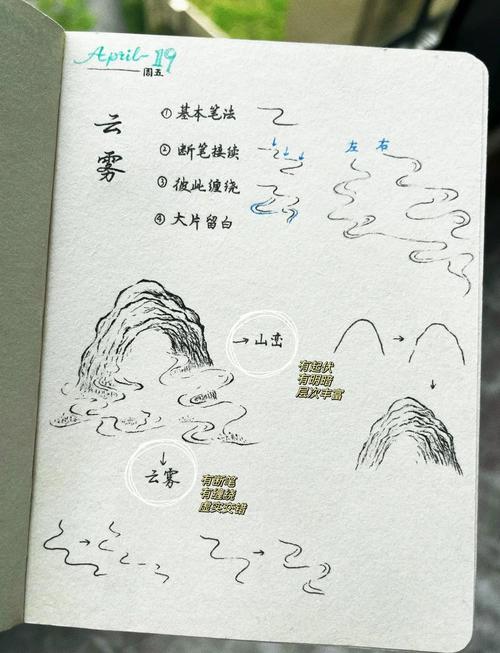 April-19
周五
云雾
① 基本笔法
② 断笔接续
③ 彼此缠绕
④ 大片留白
左 右
→山峦
有起伏
有明暗
层次丰富
云雾
有断笔
有缠绕
虚实交错